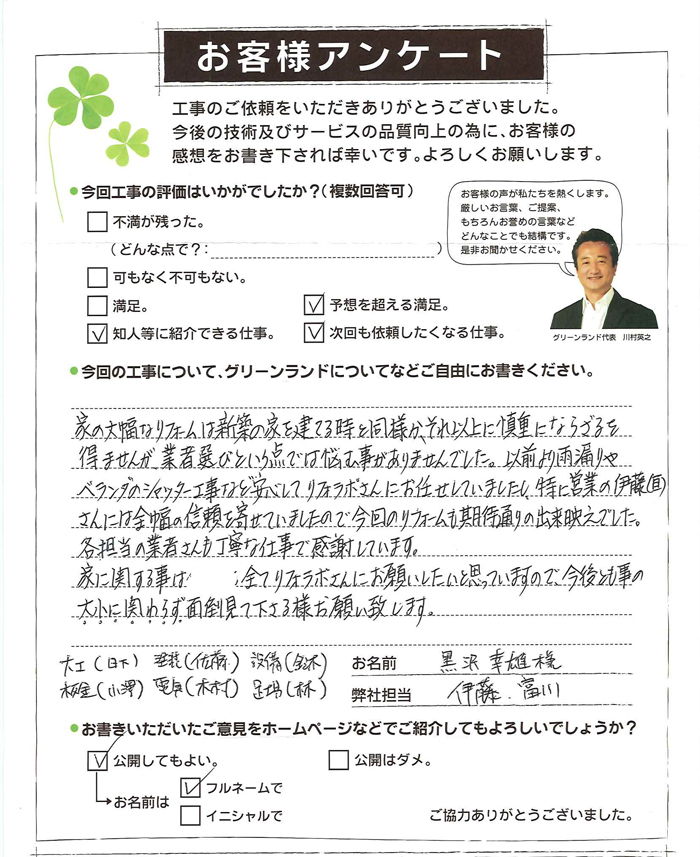 お客様アンケート
工事のご依頼をいただきありがとうございました。
今後の技術及びサービスの品質向上の為に、お客様の
感想をお書き下されば幸いです。よろしくお願いします。
●今回工事の評価はいかがでしたか？（複数回答可）
不満が残った。
（どんな点で？：　）
可もなく不可もない。
満足。
予想を超える満足。
知人等に紹介できる仕事。
次回も依頼したくなる仕事。
お客様の声が私たちを熱くします。
厳しいお言葉、ご提案、
もちろんお誉めの言葉など
どんなことでも結構です。
是非お聞かせください。
グリーンランド代表　川村英之
●今回の工事について、グリーンランドについてなどご自由にお書きください。
家の大幅なリフォームは新築の家を建てる時と同様か、それ以上に慎重にならざるを
得ませんが業者選びという点では悩む事がありませんでした。以前より雨漏りや
ベランダのシャッター工事など安心してリフォラボさんにお任せしていましたし、特に営業の伊藤(直)
さんには全幅の信頼を寄せていましたので今回のリフォームも期待通りの出来映えでした。
各担当の業者さんも丁寧な仕事で感謝しています。
家に関する事は　全てリフォラボさんにお願いしたいと思っていますので、今後とも事の
大小に関わらず面倒見て下さる様お願い致します。
大工(日下) 塗装(佐藤) 設備(鈴木)
板金(小澤) 電気(木村) 足場(林)
お名前　黒沢幸雄様
弊社担当　伊藤・富川
●お書きいただいたご意見をホームページなどでご紹介してもよろしいでしょうか？
公開してもよい。
公開はダメ。
お名前は
フルネームで
イニシャルで
ご協力ありがとうございました。